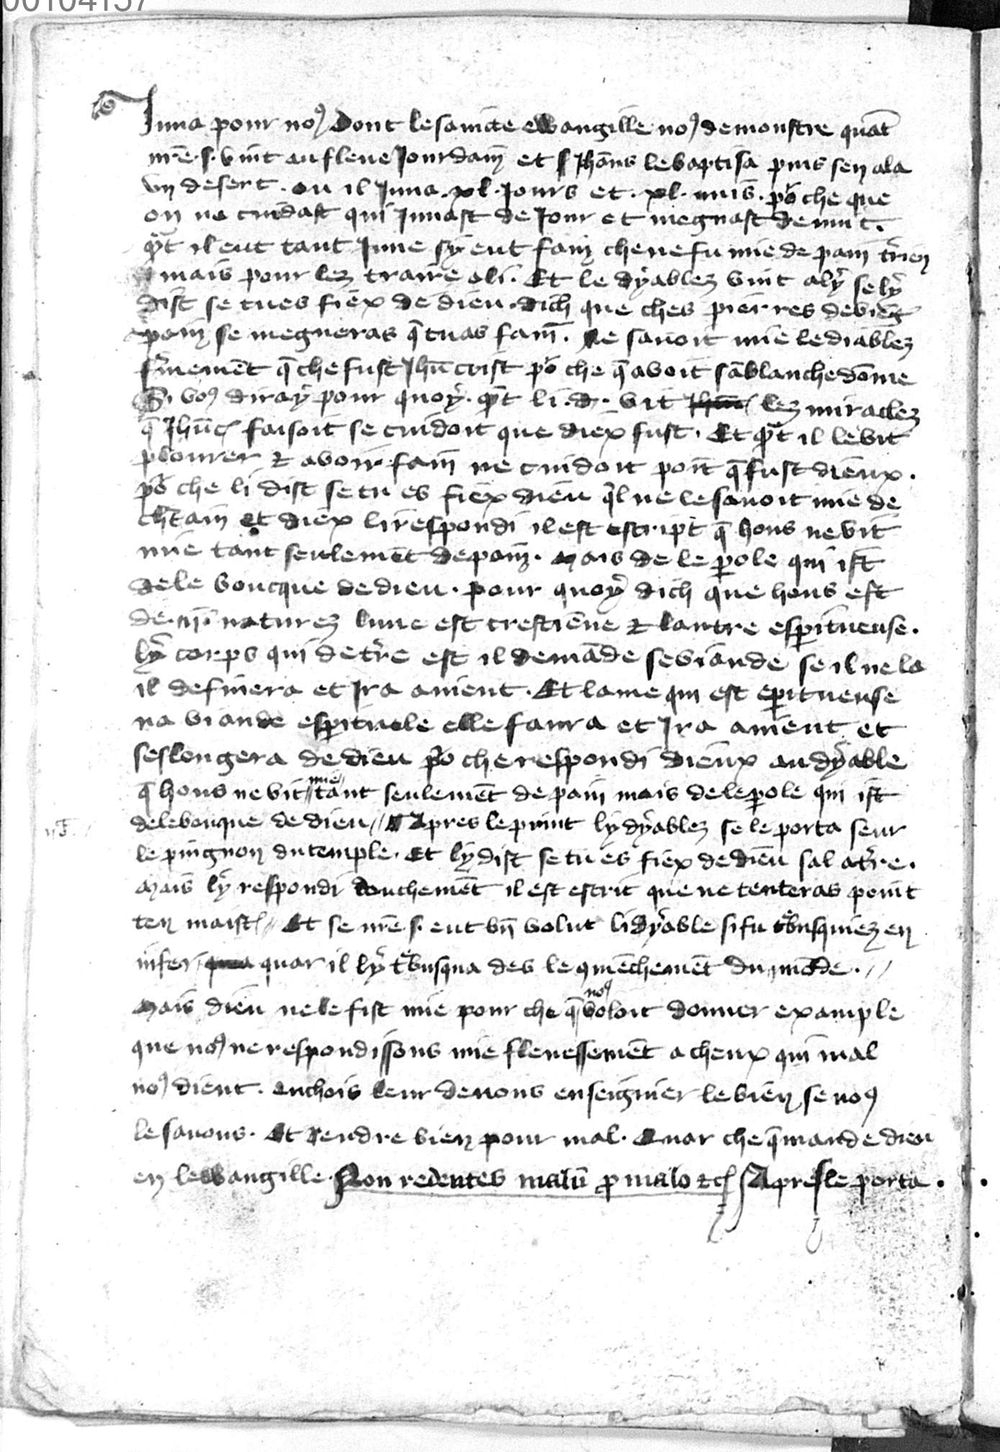 00104157
Juna pour noꝰ Dont le saincte ewangille noꝰ demonstre quāt
nr̄e .s. vint au fleue Jourdain et s Jhāns le baptisa puis sen ala
en desert . ou il Juna .xl. Jours et .xl. nuis . po᷑ che que
on ne cuidast qui Junast de Jour et megnast de nuit.
q̄t il eut tant June sy eut faim che ne fu mie de pain tr̄ien
mais pour lez traire a li . Et le dyablez vint a ly se ly
dist se tu es fiex de dieu . dich que ches pierres deviēt
pain se megneras q̄ tu as faim . Ne savoit mie le diablez
fr̄mement q̄ che fust Jhūcrist po᷑ che q̄ avoit sāblanche dōme
Si voꝰ diray pour quoy . q̄t li .d. vit lez miraclez
q̄ Jhūc faisoit se cuidoit que diex fust . Et q̄t il le vit
plourer ⁊ avoir faim ne cuidoit point q̄ fust dieux .
po᷑ che li dist se tu es fiex dieu q̄l ne le savoit mie de
chr̄tain et diex li respondi il est escript q̄ hons ne vit
mie tant seulemēt de pain . mais de le ꝑole qui ist
de le boucque de dieu . pour quoy dich que hons est
de .ii. naturez lune est crestiēne ⁊ lautre espirituеuse .
ly corps qui de tr̄e est il demāde se viande se il ne la
il definera et Jra a nient . Et lame qui est epirituеuse
na viande espirituele elle faura et Jra a nient et
seslongera de dieu po᷑ che respondi dieux au dyable
q̄ hons ne vit mie tant seulemēt de pain mais de le ꝑole qui ist
de le bouque de dieu // Apres le print ly dyablez se le porta seur
le pingnon du temple . Et ly dist se tu es fiex de dieu sal a tr̄e .
Mais ly respondi douchemēt il est escrit que ne tenteras point
ten maist // Et se nr̄e s. eut bn̄ volut li dyable si fu t̄busquiez en
infer quar il ly t̄busqua des le qmēchemēt du mōde . //
Mais dieu ne le fist mie pour che q̄ noꝰ voloit donner example
que noꝰ ne respondissons mie flenessemēt a cheux qui mal
noꝰ dient . anchois leur devons enseignier le bien se noꝰ
le savons . Et rendre bien pour mal . Quar che q̄mande dieu
en lewangille . Non redentes malū ꝓ malo ⁊c̄ Apres le porta .